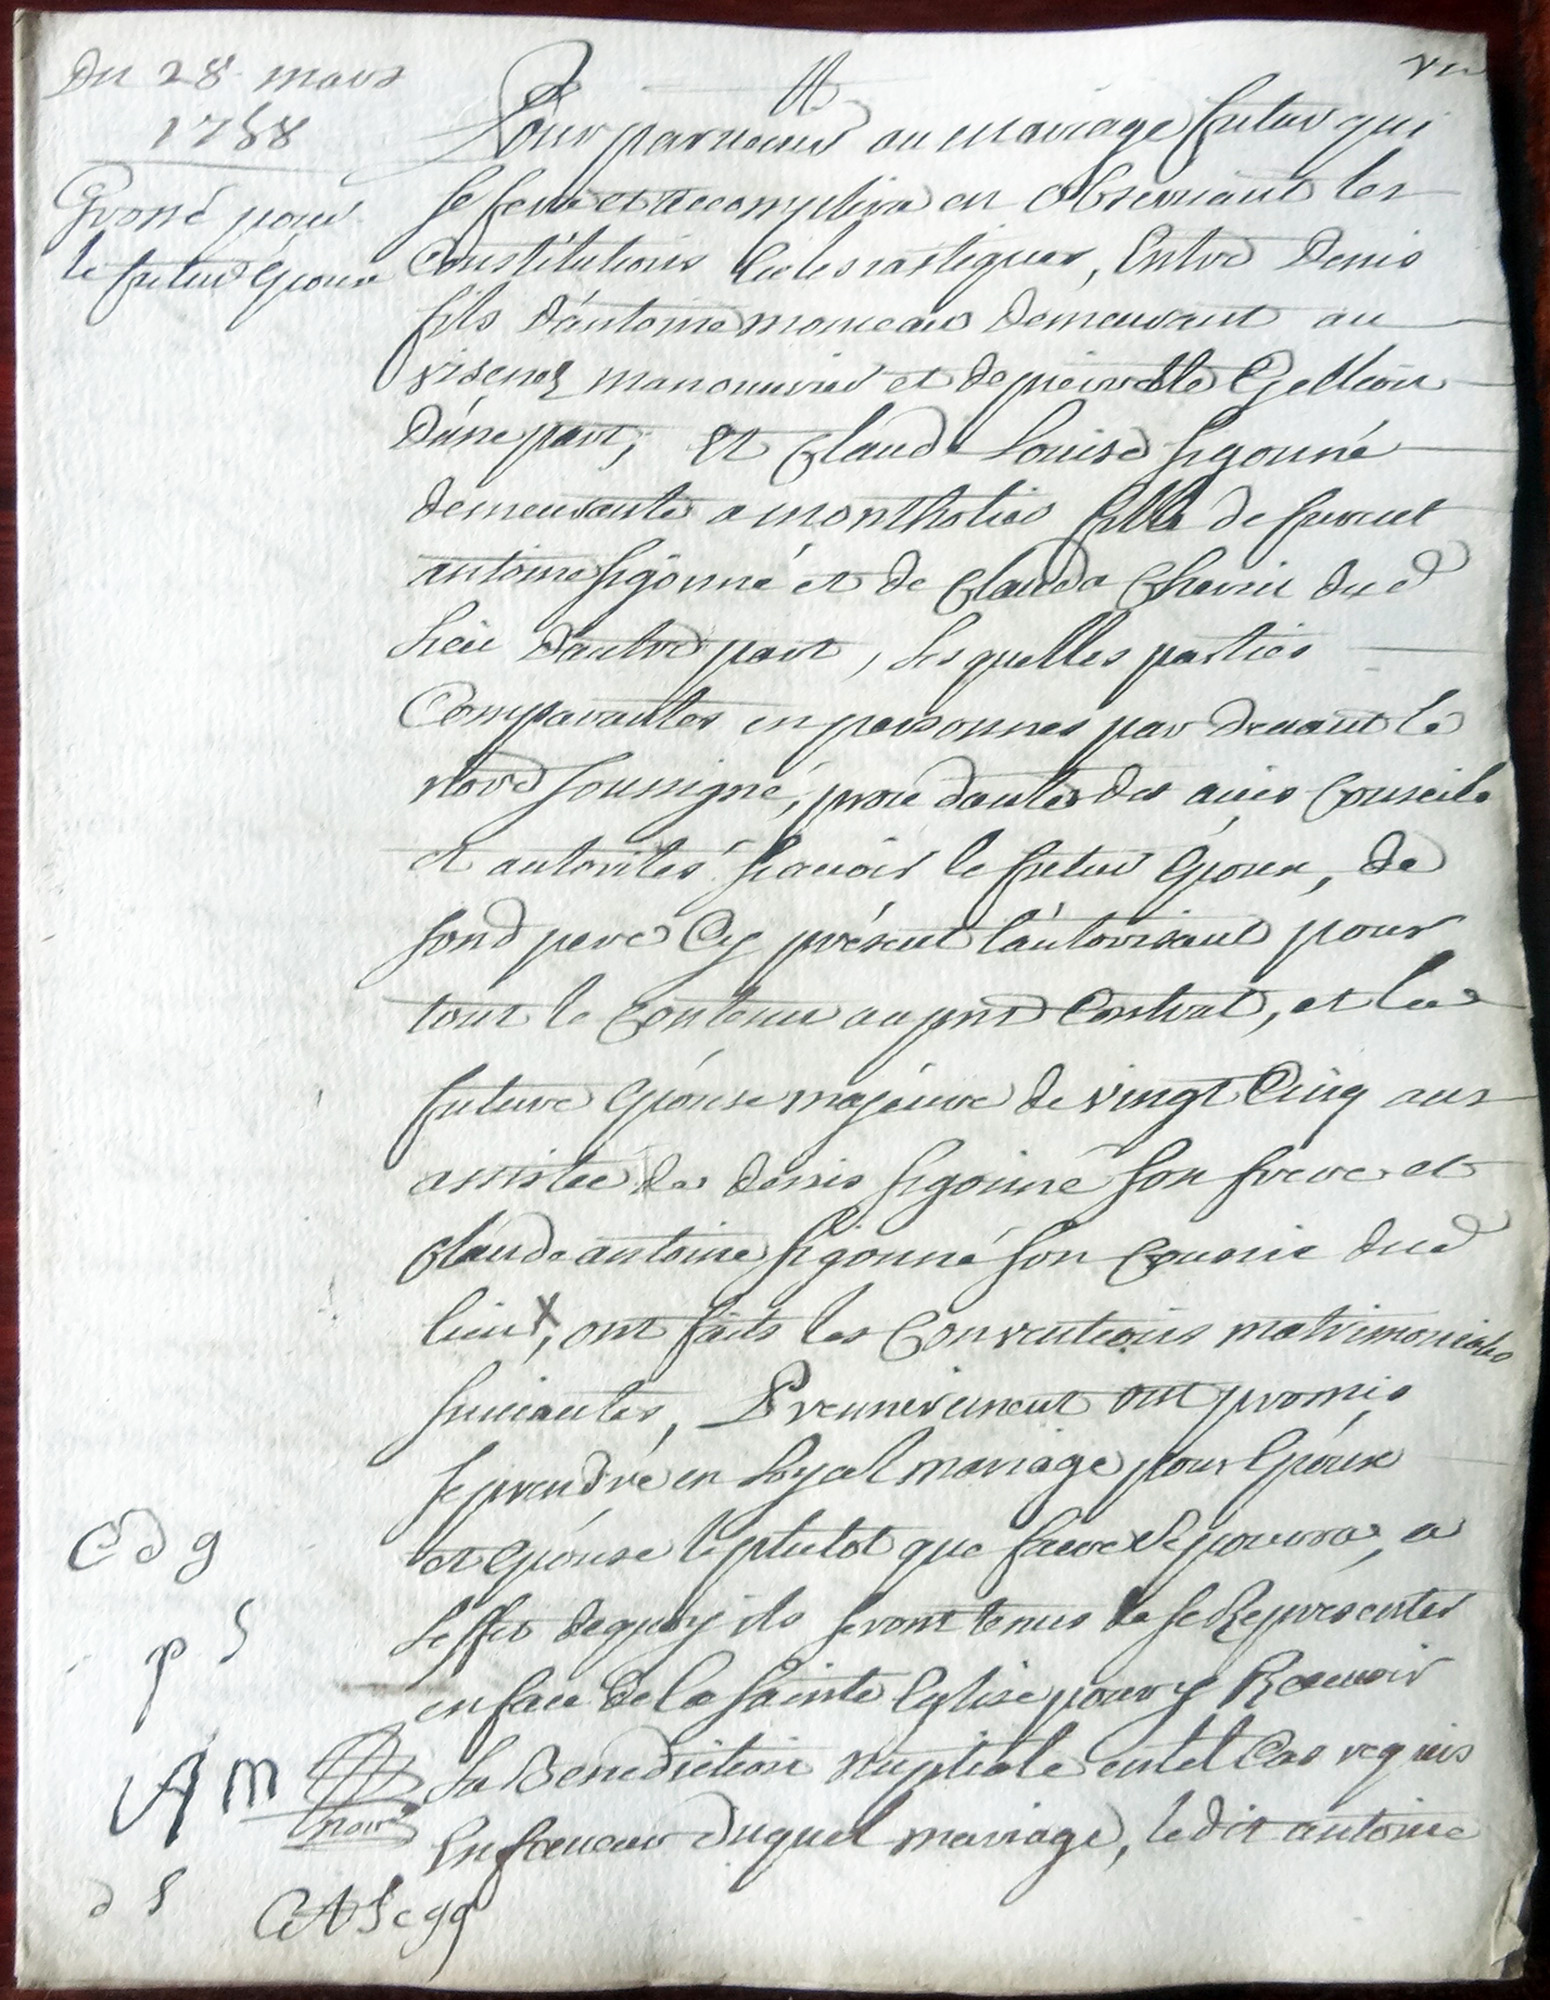 Du 28 mars
1788
Grossé pour
le futur Epoux
Pour parvenir au mariage futur qui
se fera et accomplira en observant les
Constitutions Eclesiastiques, Entre Denis
fils d'antoine monceau demeurant au
manouvrier et de pierrette
D'une part, Et Claude Louise Sigonné
demeurante a montholier fille de furent
antoine Sigonné et de Claude Chevin dud
lieu D'autre part, les quelles parties
Comparantes en personnes par devant le
nore soussigné, procédantes des avis Conseils
et autorités sçavoir le futur Epoux, de
sond pere Cy présent l'autorisant pour
tout le Contenu au pnt Contrat, et la
future Epouse majeure de vingt Cinq ans
assistée de denis Sigonné son frere et
Claude antoine Sigonné son Cousin dud
lieu X, ont faits les Conventions matrimoniales
suivantes, Premierement ont promis
se prendre en loyal mariage pour Epoux
et Epouse le plutot que faire se pourra, a
l'effet de quoy ils seront tenus de se Représenter
en face de la Sainte Eglise pour y Recevoir
la Benediction Nuptiale en tel Cas requis
En faveur duquel mariage, le dit antoine
C d g
p S
A m
noire
d S
C A S c g g